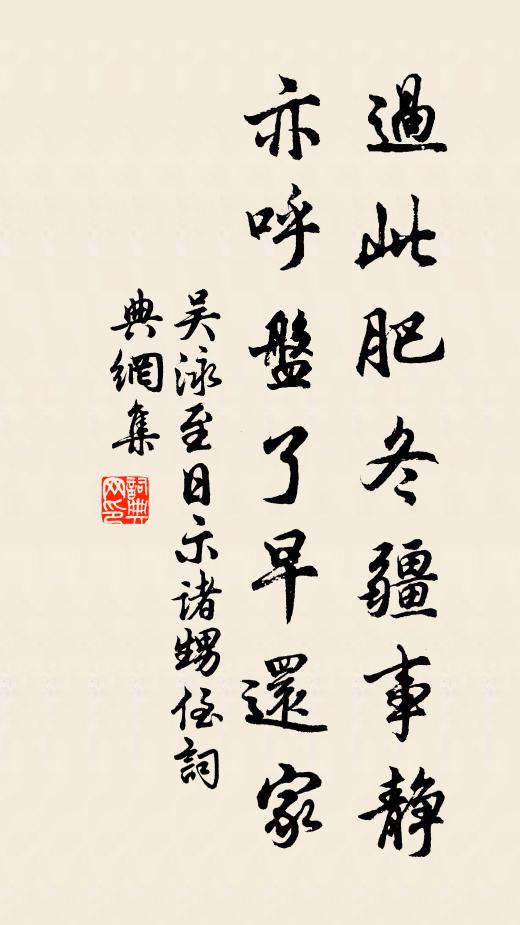 過此肥冬疆事靜
亦呼盤了早還家
吳泳至日示諸甥侄詞
典網集
詞典網印